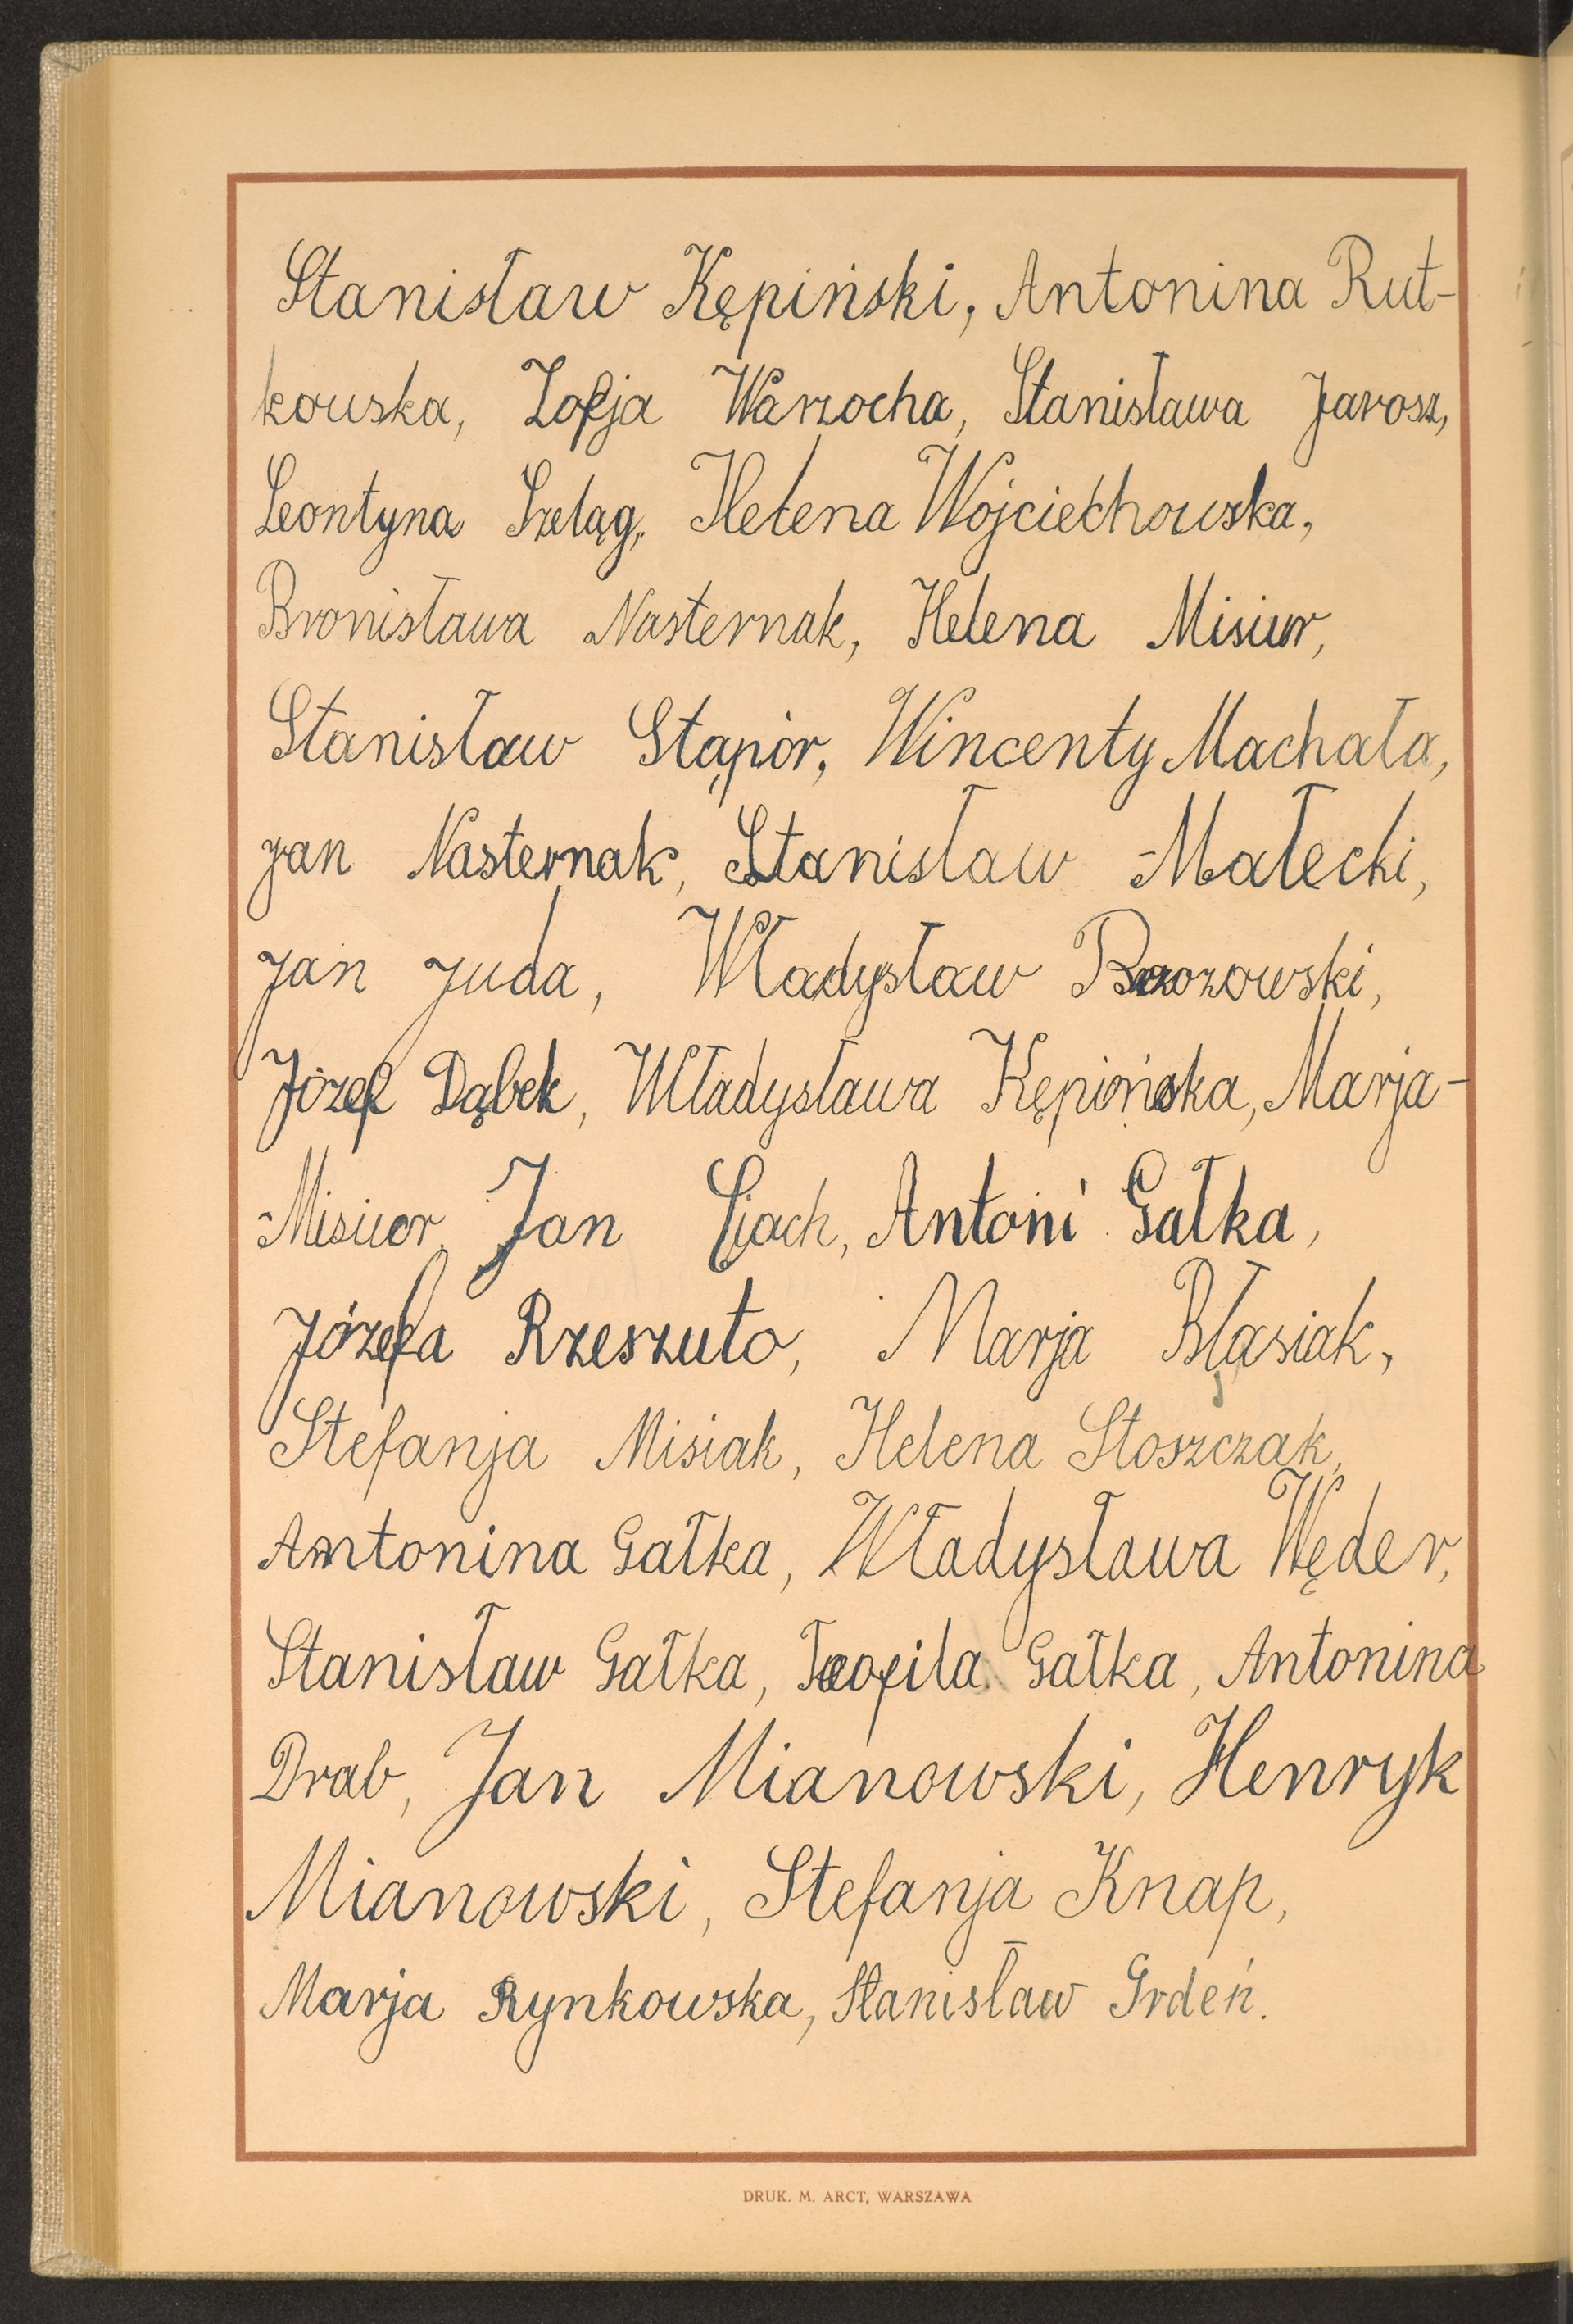 Stanisław Kępiński, Antonina Rut-
kowska, Zofja Warzocha, Stanisława Jarosz,
Leontyna Szeląg, Helena Wojciechowska,
Bronisława Nasternak, Helena Misiur,
Stanisław Stąpór, Wincenty Machała,
Jan Nasternak, Stanisław Małecki,
Jan Juda, Władysław Brzozowski,
Józef Dąbek, Władysława Kępińska, Marja-
Misiur, Jan Ciach, Antoni Gałka,
Józefa Rzeszuto, Marja Błasiak,
Stefanja Misiak, Helena Stoszczak,
Antonina Gałka, Władysława Węder,
Stanisław Gałka, Teofila Gałka, Antonina
Drab, Jan Mianowski, Henryk
Mianowski, Stefanja Knap,
Marja Rynkowska, Stanisław Grdeń.
DRUK. M. ARCT, WARSZAWA